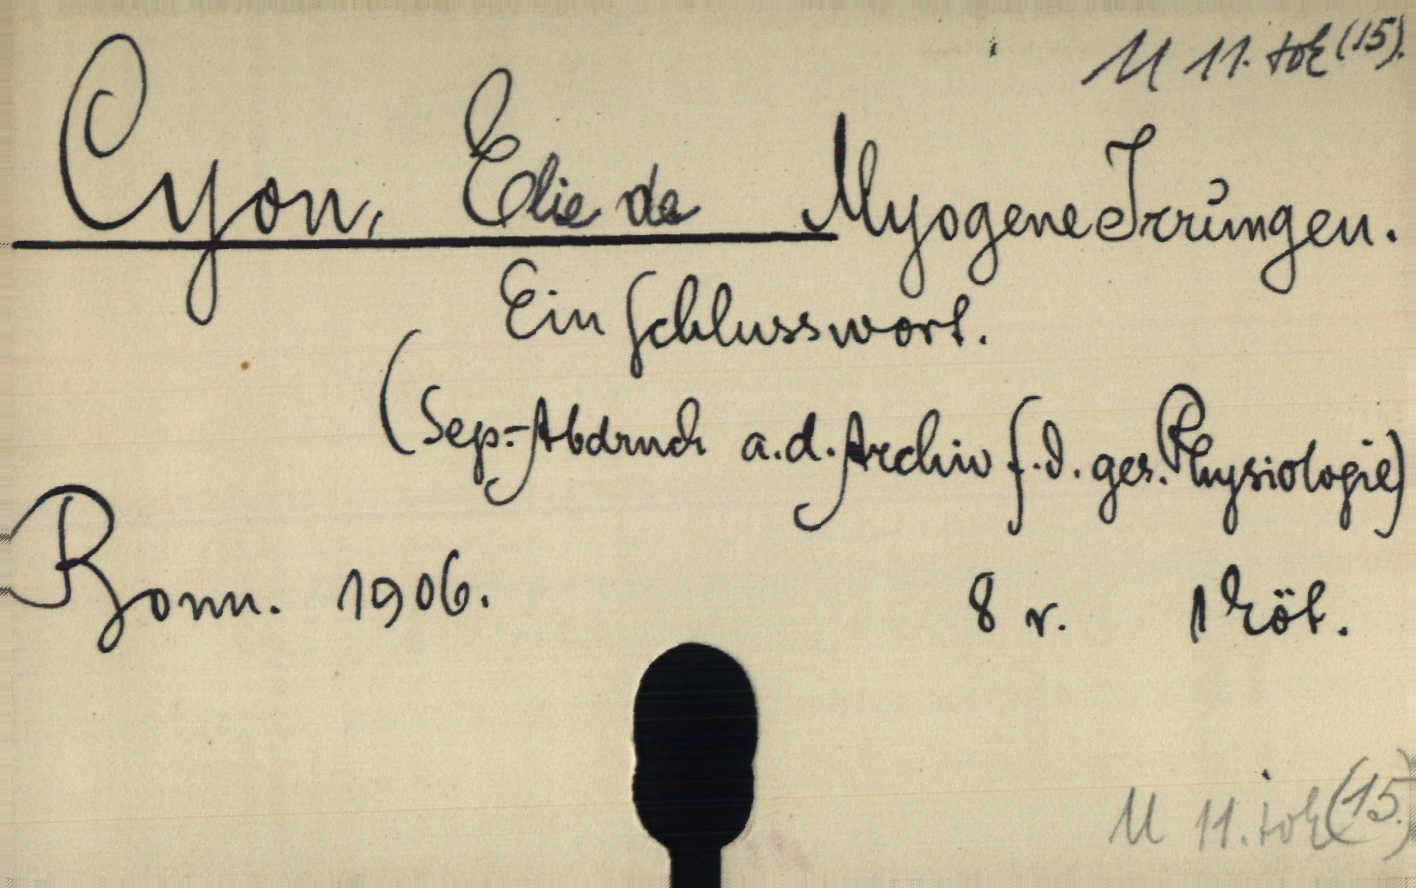 M 11. tok (15).
Cyon, Elie de Myogene Irrungen.
Ein Schlusswort.
(Sep.-Abdruck a. d. Archiv f. d. ges. Physiologie)
Bonn. 1906. 8 r. 1 köt.
M 11. tok (15.)